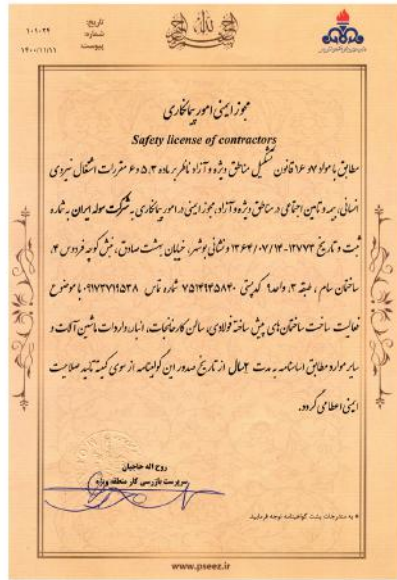 تاریخ:
شماره: ۱۰۱۰۲۴
پیوست: ۱۴۰۰/۱۱/۱۱
مجوز ایمنی امور پیمانکاری
Safety license of contractors
مطابق با مواد ۷ و ۱۶ قانون تشکیل مناطق ویژه و آزاد ناظر بر ماده ۳، ۵ و ۶ مقررات اشتغال نیروی
انسانی، بیمه و تامین اجتماعی در مناطق ویژه و آزاد، مجوز ایمنی در امور پیمانکاری به شرکت سوله ایران به شماره
ثبت و تاریخ ۱۲۷۷۳-۱۳۶۴/۰۷/۱۴ و نشانی بوشهر، خیابان بهشت صادق، نبش کوچه فردوس ۴،
ساختمان سام، طبقه ۳، واحد ۹ کدپستی ۷۵۱۴۹۴۵۸۴۰ شماره تماس ۰۹۱۷۳۷۱۹۵۳۸ با موضوع
فعالیت ساخت ساختمان های پیش ساخته فولادی، سالن کارخانجات، انبار، واردات ماشین آلات و
سایر موارد مطابق اساسنامه به مدت ۲سال از تاریخ صدور این گواهینامه از سوی کمیته تائید صلاحیت
ایمنی اعطا می گردد.
روح اله حاجیان
سرپرست بازرسی کار منطقه ویژه
* به مندرجات پشت گواهینامه توجه فرمایید
www.pseez.ir